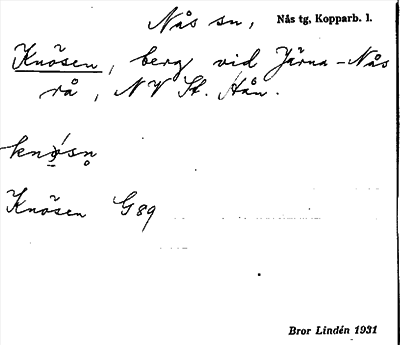 Nås sn, Nås tg, Kopparb. l.
Knösen, berg vid Järna-Nås
rå, NV St. Hån.
knø̀sn̥
Knösen G89
Bror Lindén 1931